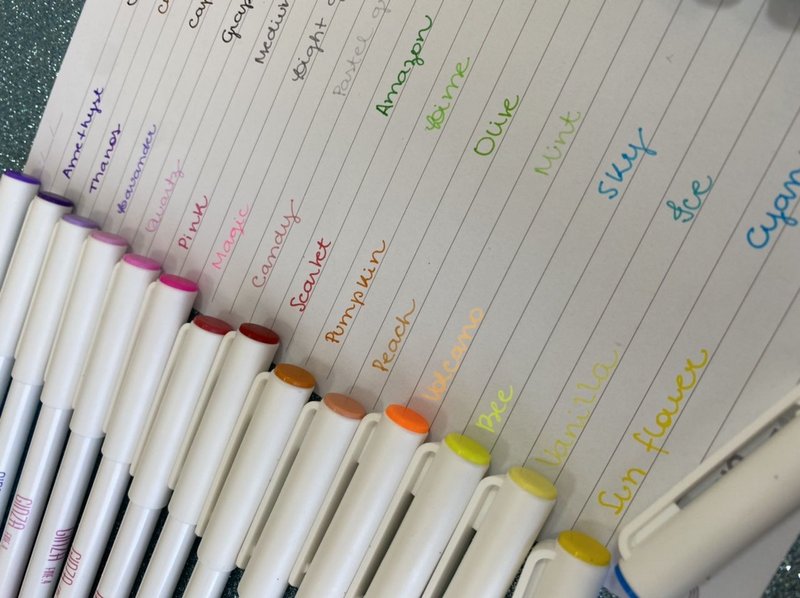 Amethyst
Thanos
Lavander
Quartz
Pink
Magic
Candy
Scarlet
Pumpkin
Peach
Volcano
Bee
Vanilla
Sun flower
Medium
Light
Pastel
Amazon
Lime
Olive
Mint
Sky
Ice
Cyan
GINZA
GINZA